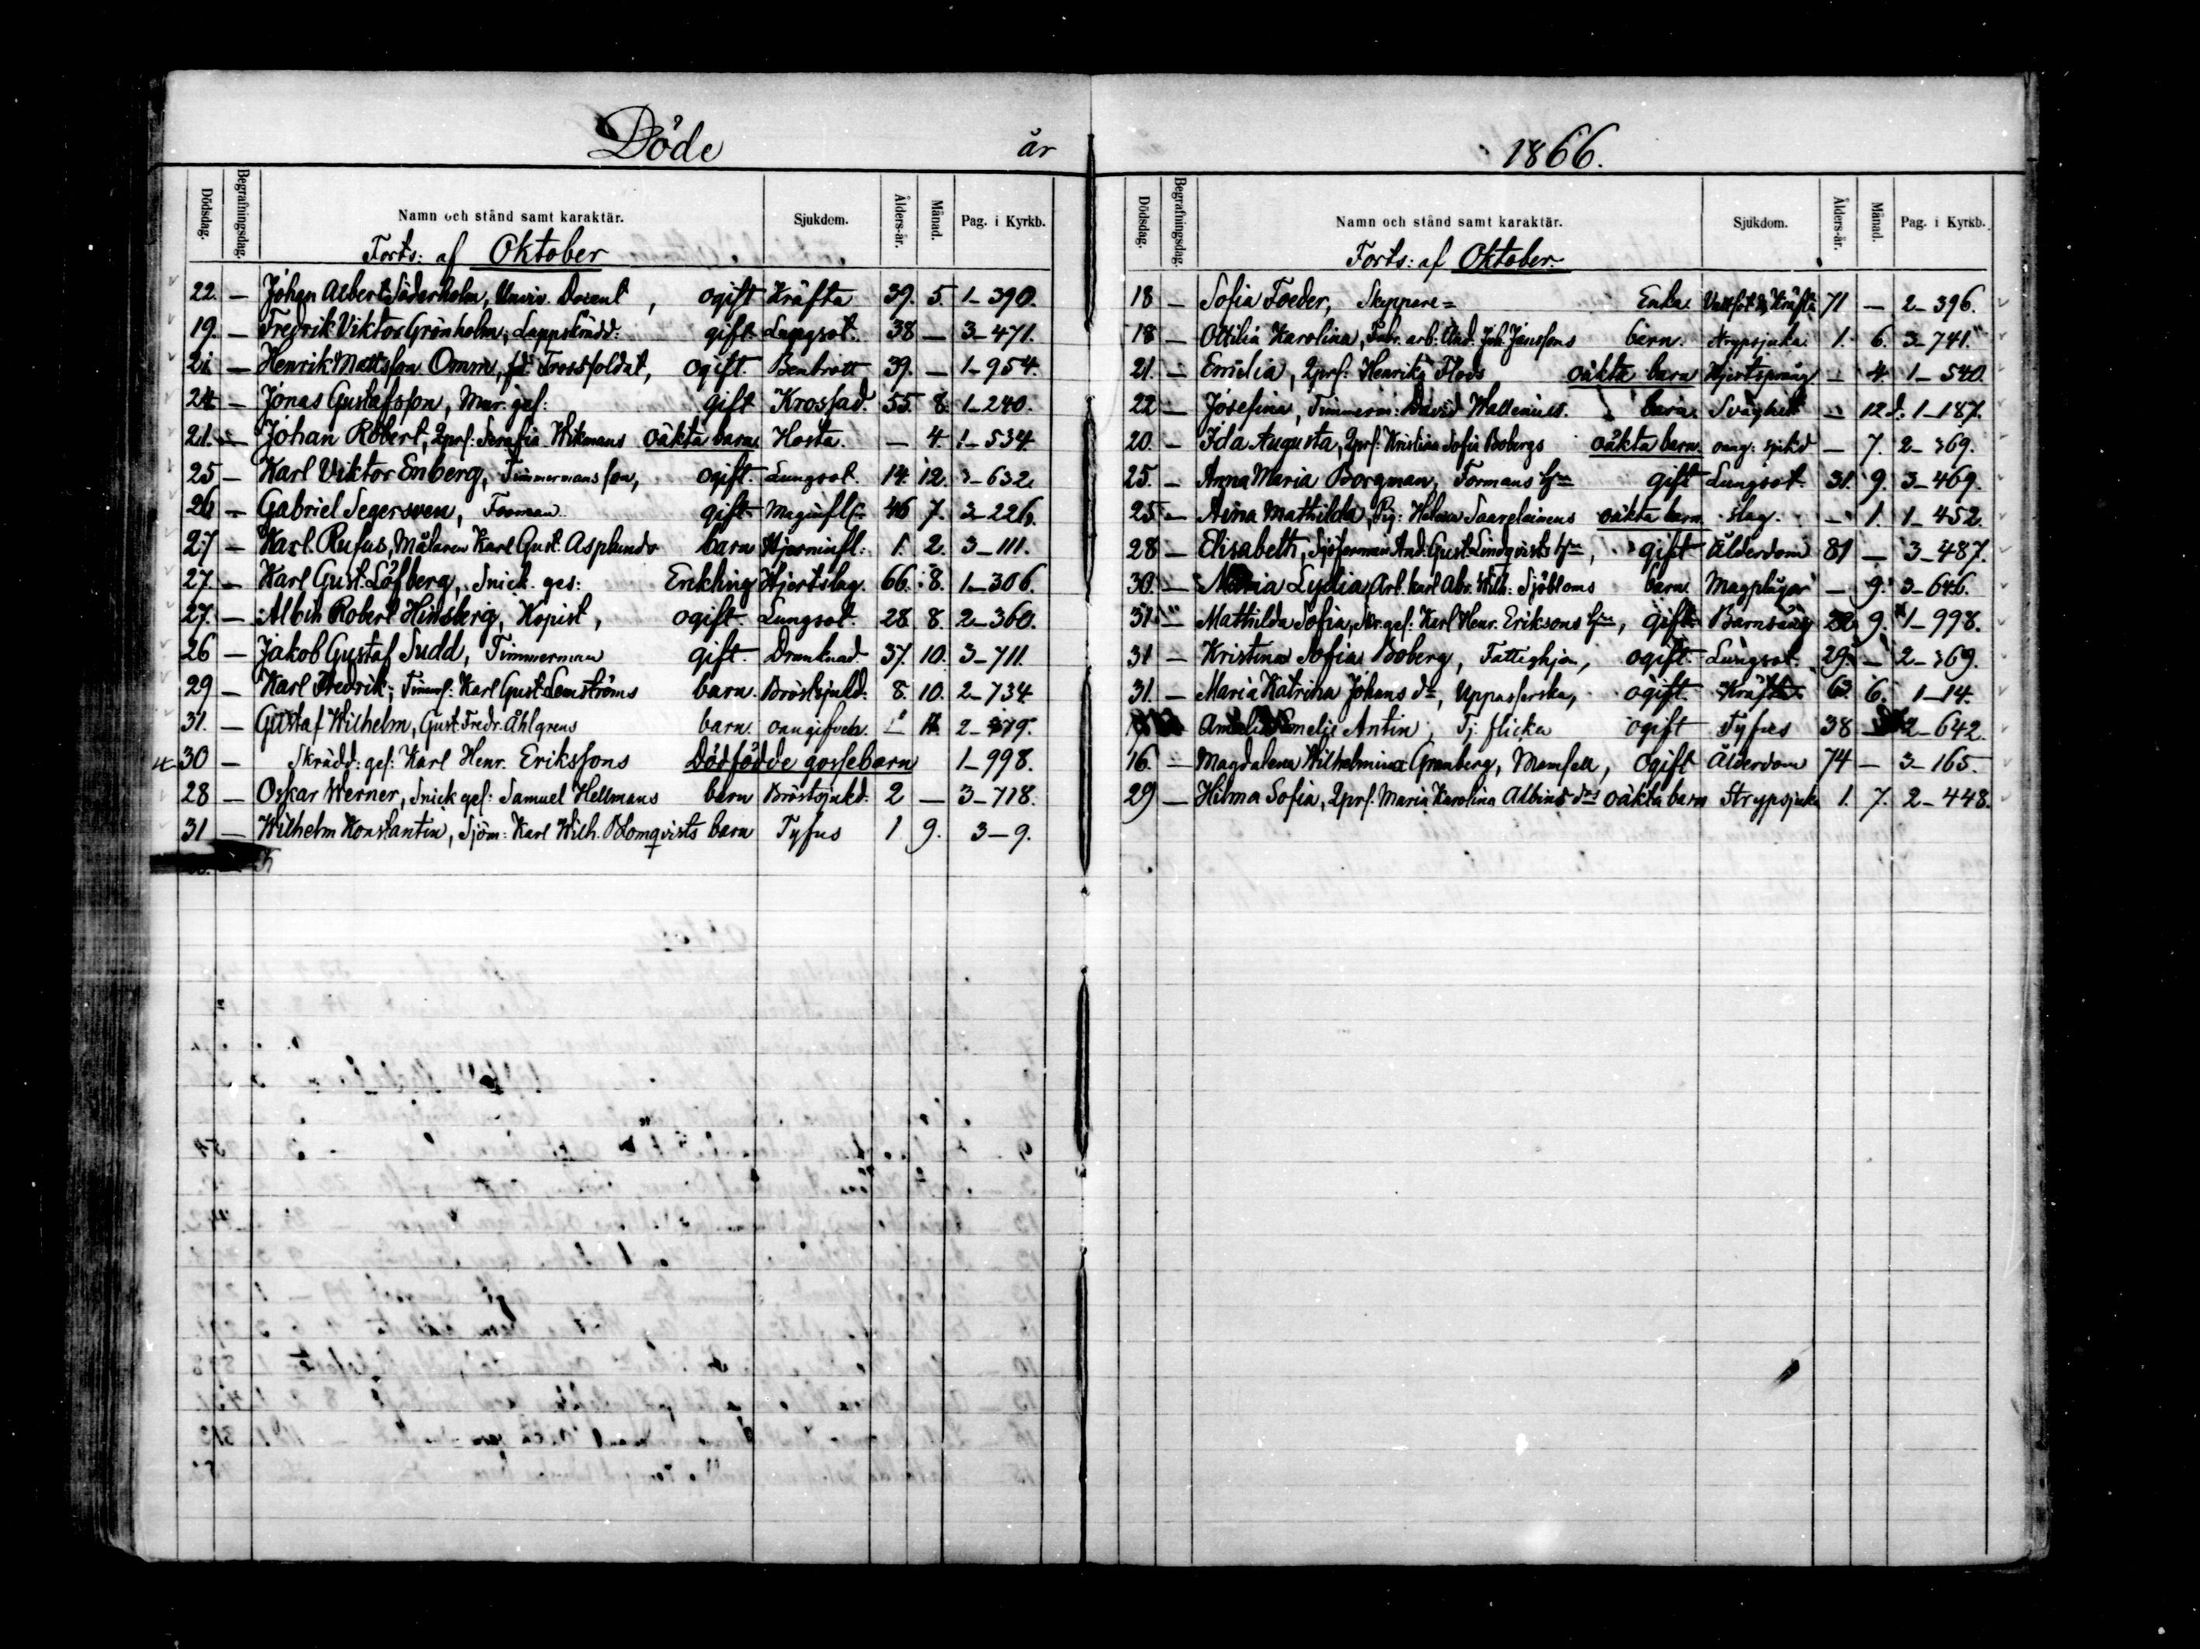 Döde år
Dödsdag. Begrafningsdag. Namn och stånd samt karaktär. Sjukdom. Ålders-år. Månad. Pag. i Kyrkb.
Forts: af Oktober
22. — Johan Albert Söderholm, Univ. Docent, ogift Kräfta 39. 5. 1—390.
19. — Fredrik Viktor Grönholm, gift. Lungsot. 38 — 3—471.
21. — Henrik Mattsson Omm, fd Trossoldat, ogift. Benbrott 39. — 1—954.
24 — Jonas Gustafsson, Mur. ges: gift Krossad. 55. 8. 1—240.
21. — Johan Robert, Qprs: Serafia Wikmans oäkta barn Hosta. — 4. 1—534.
25 — Karl Viktor Enberg, Timmermansson, ogift. Lungsot. 14. 12. 3—632.
26 — Gabriel Segersven, Forman gift 46 7. 3—226.
27 — Karl Rufus, Målaren Karl Gust. Asplunds barn Hjerninfl: 1. 2. 3—111.
27. — Karl Gust. Löfberg, Snick. ges: Enkling Hjertslag. 66. 8. 1—306.
27. — Albin Robert Hinsberg, Kopist, ogift. Lungsot. 28 8. 2—360.
26 — Jakob Gustaf Sudd, Timmerman gift. Drunknad. 37. 10. 3—711.
29 — Karl Fredrik, Timmf: Karl Gust. Lemströms barn. Bröstsjukd: 8. 10. 2—734
31. — Gustaf Wilhelm, Gust. Fredr. Åhlgrens barn. oangifven. —
30 — Skrädd: ges: Karl Henr. Erikssons Dödfödde gossebarn 1—998.
28 — Oskar Werner, Snick ges: Samuel Hellmans barn Bröstsjukd: 2 — 3—718.
31 — Wilhelm Konstantin, Sjöm: Karl Wilh. Blomqvists barn Tyfus 1 9. 3—9.
1866.
Dödsdag. Begrafningsdag. Namn och stånd samt karaktär. Sjukdom. Ålders-år. Månad. Pag. i Kyrkb.
Forts: af Oktober.
18 — Sofia Foeder, Skeppare= Enka. 71 — 2—396.
18 — Ottilia Karolina, Fabr. arb. And. Joh. Janssons barn. Strypsjuka 1. 6. 3—741.
21. — Emilia, Qprs: Henrika Flods oäkta barn Hjertsprång — 4. 1—540.
22 — Josefina, Timmerm: David Wallenius. barn. Svaghet — 12 d. 1—187.
20. — Ida Augusta, Qprs: Kristina Sofia Bobergs oäkta barn. oang: sjukd — 7. 2—369.
25. — Anna Maria Borgman, Formans Hu gift Lungsot. 31. 9. 3—469.
25 — Aina Mathilda, Pig: Helena Saarelainens oäkta barn slag. — 1. 1—452.
28 — Elisabeth, And: Gust. Lindqvists Hu, gift Ålderdom 81 — 3—487.
30. — Maria Lydia, Arb. Karl Abr. Wilh: Sjöbloms barn. Magplågor — 9. 3—646.
31 — Mathilda Sofia, Skr. ges: Karl Henr. Eriksons Hu, gift Barnsäng 9. 1—998.
31 — Kristina Sofia Boberg, Fattighjon, ogift. Lungsot. 29. — 2—369.
31. — Maria Katrina Johans dr, Uppasserska, ogift. Kräfta 62 6. 1—14.
Amelie Antin, Tj. flicka ogift Tyfus 38 2—642.
16. — Magdalena Wilhelmina Granberg, Mamsell, ogift Ålderdom 74 — 3—165.
29 — Hilma Sofia, Qprs: Maria Karolina Albins drs oäkta barn Strypsjuka 1. 7. 2—448.